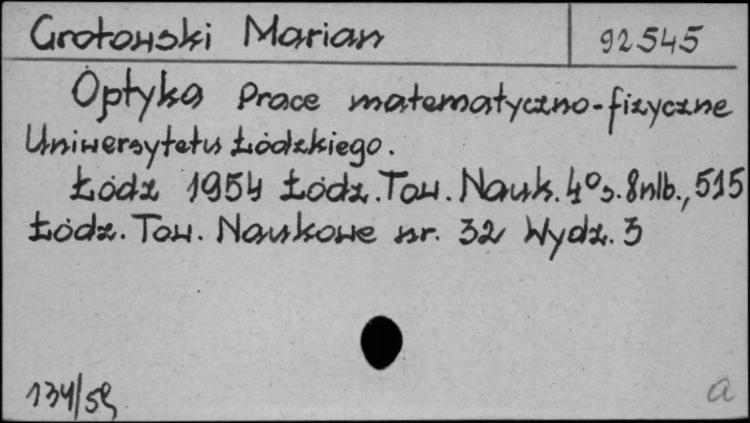 Grotowski Marian
92545
Optyka Prace matematyczno-fizyczne
Uniwersytetu Łódzkiego.
Łódź 1954 Łódz. Tow. Nauk. 4° s. 8nlb., 515
Łódz. Tow. Naukowe nr. 32 Wydz. 3
134/59
a